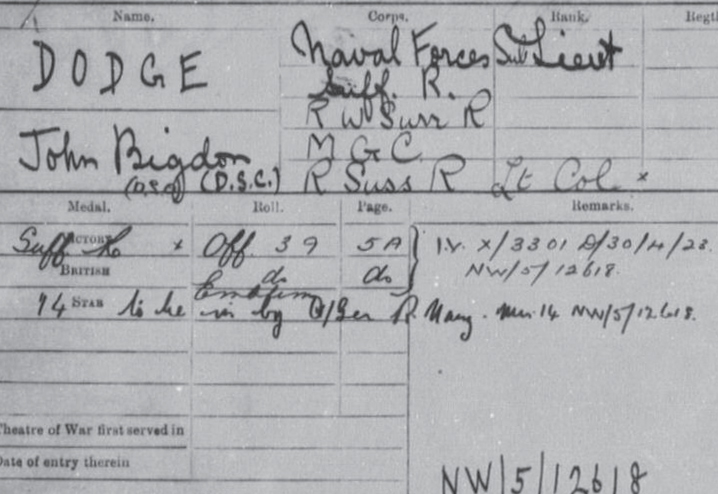 Name. Corps. Rank. Regtl
DODGE Naval Forces Sub Lieut
Suff. R.
R W Surr R
John Bigdon M G C.
(D.S.O) (D.S.C.) R Suss R Lt Col ×
Medal. Roll. Page. Remarks.
Suff R VICTORY × Off. 39 5A I.V. X/3301 D/30/4/23.
BRITISH do do NW/5/12618.
14 STAR to be by R. NW/5/12618.
Theatre of War first served in
Date of entry therein
NW/5/12618